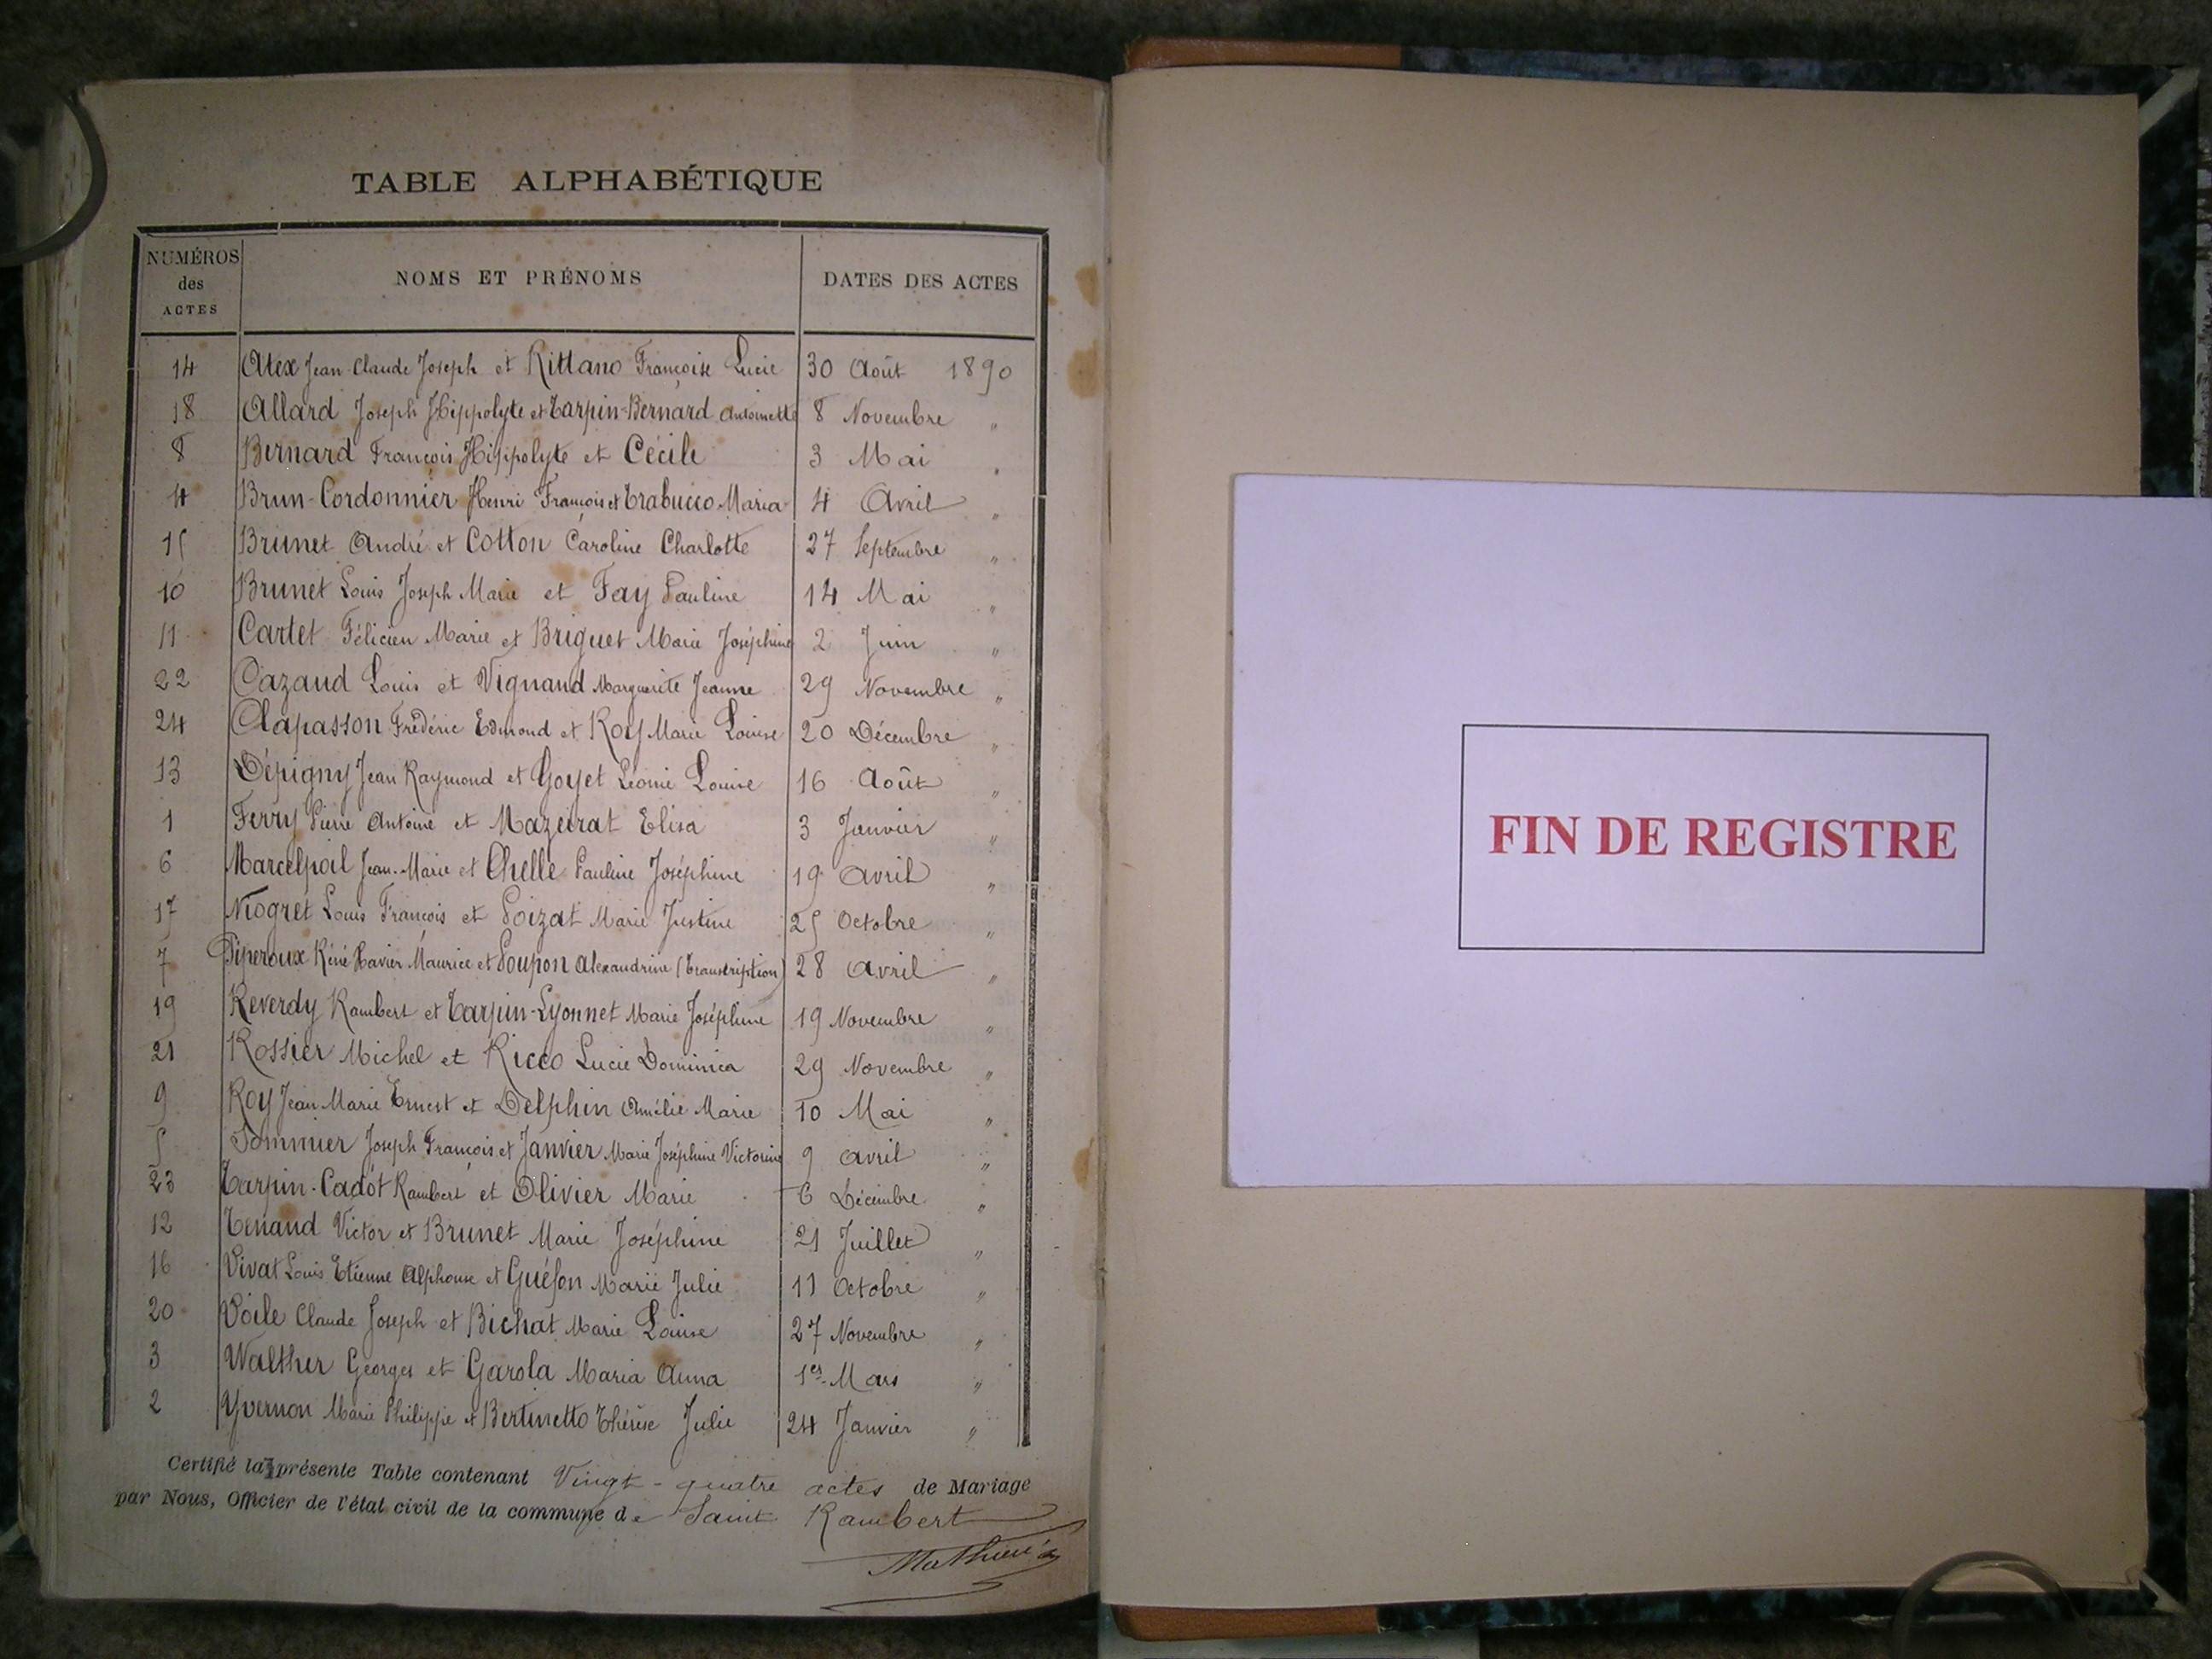 TABLE ALPHABÉTIQUE
NUMÉROS des ACTES NOMS ET PRÉNOMS DATES DES ACTES
14 Atex Jean Claude Joseph et Rittano Françoise Lucie 30 Août 1890
18 Allard Joseph Hippolyte et Tarpin-Bernard Antoinette 8 Novembre "
8 Bernard François Hippolyte et Cécile 3 Mai "
4 Brun-Cordonnier Henri François et Trabucco Maria 4 Avril "
15 Brunet André et Cotton Caroline Charlotte 27 Septembre "
10 Brunet Louis Joseph Marie et Fay Pauline 14 Mai "
11 Cartet Félicien Marie et Briguet Marie Joséphine 2 Juin "
22 Cazaud Louis et Vignand Marguerite Jeanne 29 Novembre "
24 Clapasson Frédéric Edmond et Roy Marie Louise 20 Décembre "
13 Dépigny Jean Raymond et Goyet Léonie Louise 16 Août "
1 Ferry Pierre Antoine et Mazeirat Elisa 3 Janvier "
6 Marcelpoil Jean-Marie et Chelle Pauline Joséphine 19 Avril "
17 Niogret Louis François et Loizat Marie Justine 25 Octobre "
7 Piperoux Réné Xavier Maurice et Poupon Alexandrine (Transcription) 28 Avril "
19 Reverdy Rambert et Tarpin-Lyonnet Marie Joséphine 19 Novembre "
21 Rossier Michel et Ricco Lucie Dominica 29 Novembre "
9 Roy Jean Marie Ernest et Delphin Amélie Marie 10 Mai "
5 Sommier Joseph François et Janvier Marie Joséphine Victorine 9 Avril "
23 Tarpin-Cadot Rambert et Olivier Marie 6 Décembre "
12 Tenand Victor et Brunet Marie Joséphine 21 Juillet "
16 Vivat Louis Etienne Alphonse et Guéson Marie Julie 11 Octobre "
20 Voile Claude Joseph et Bichat Marie Louise 27 Novembre "
3 Walther Georges et Garola Maria Anna 1er Mars "
2 Yvernon Marie Philippe et Bertinetto Thérèse Julie 24 Janvier "
Certifié la présente Table contenant Vingt-quatre actes de Mariage
par Nous, Officier de l'état civil de la commune de Saint Rambert
FIN DE REGISTRE